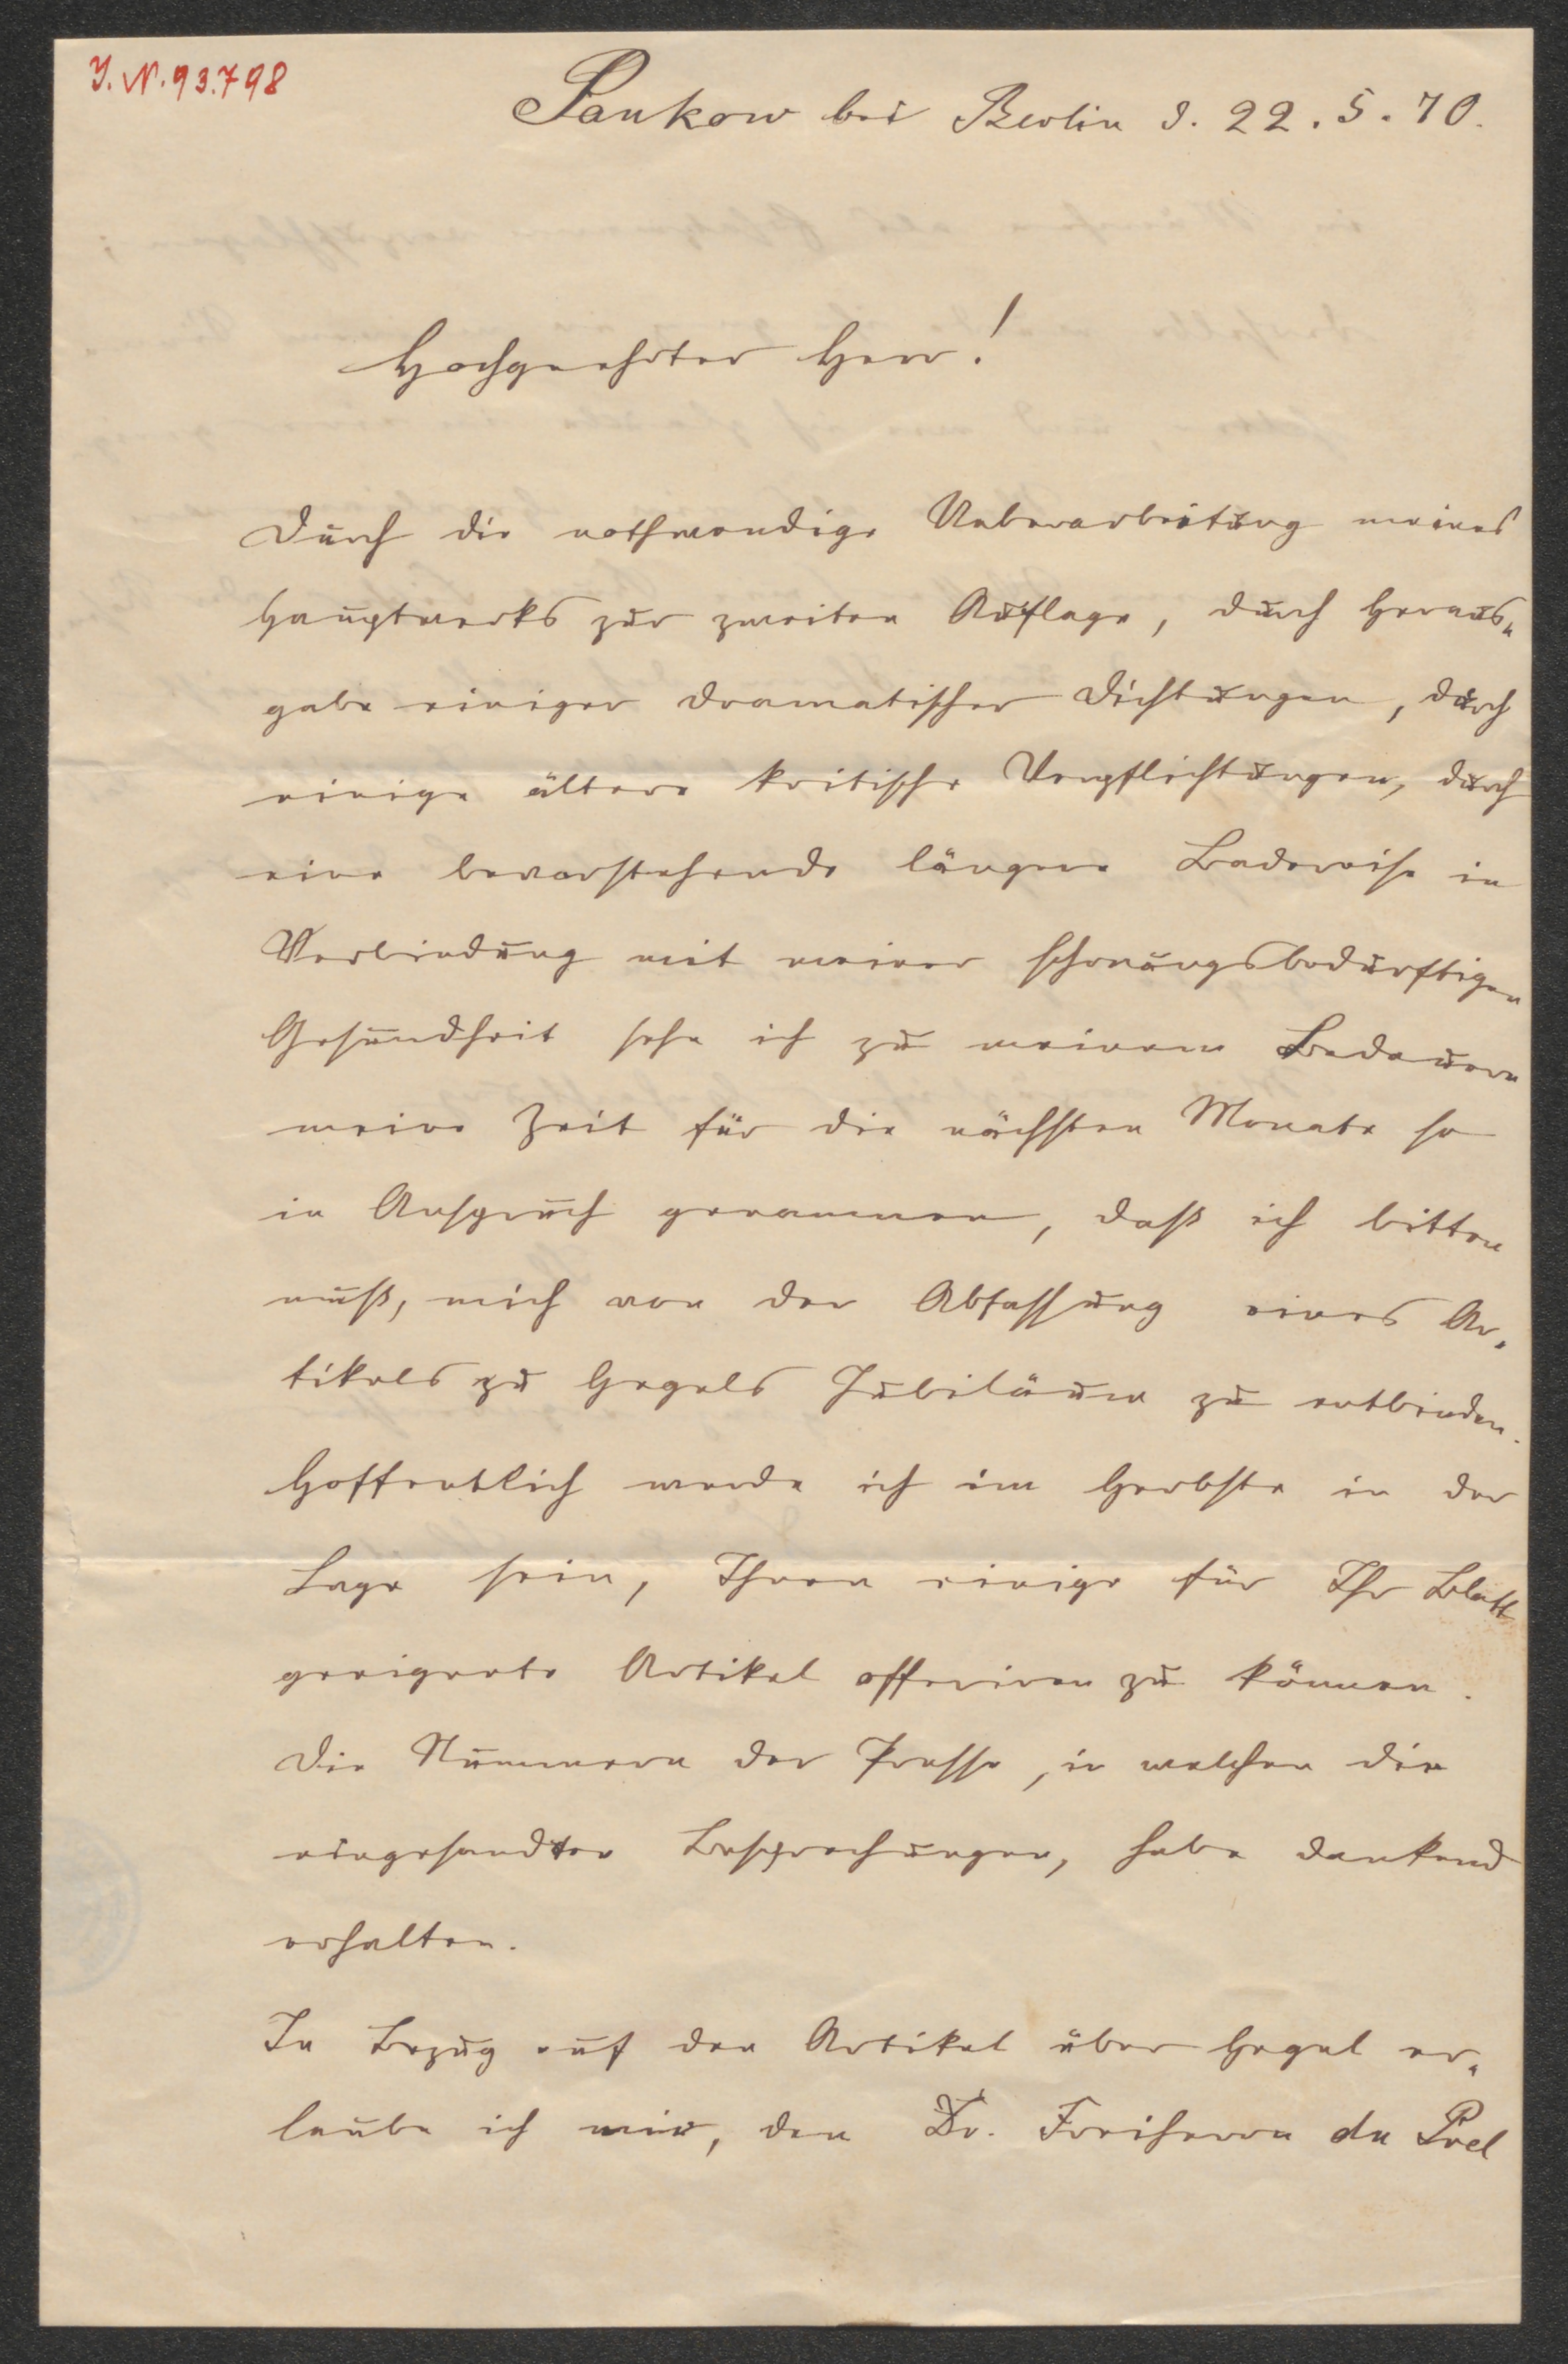 J. N. 93.798
Pankow bei Berlin d. 22. 5. 70.
Hochgeehrter Herr!
Durch die nothwendige Ueberarbeitung meines
Hauptwerks zur zweiten Auflage, durch Heraus-
gabe einiger dramatischer Dichtungen, durch
einige ältere kritische Verpflichtungen, durch
eine bevorstehende längere Badereise in
Verbindung mit meiner schonungsbedürftigen
Gesundheit sehe ich zu meinem Bedauern
meine Zeit für die nächsten Monate so
in Anspruch genommen, daß ich bitten
muß, mich von der Abfassung eines Ar-
tikels zu Hegels Jubiläum zu entbinden.
Hoffentlich werde ich im Herbste in der
Lage sein, Ihnen einige für Ihr Blatt
geeignete Artikel offeriren zu können.
Die Nummern der Presse, in welchen die
eingesandten Besprechungen, habe dankend
erhalten.
In Bezug auf den Artikel über Hegel er-
laube ich mir, den Dr. Freiherrn du Prel